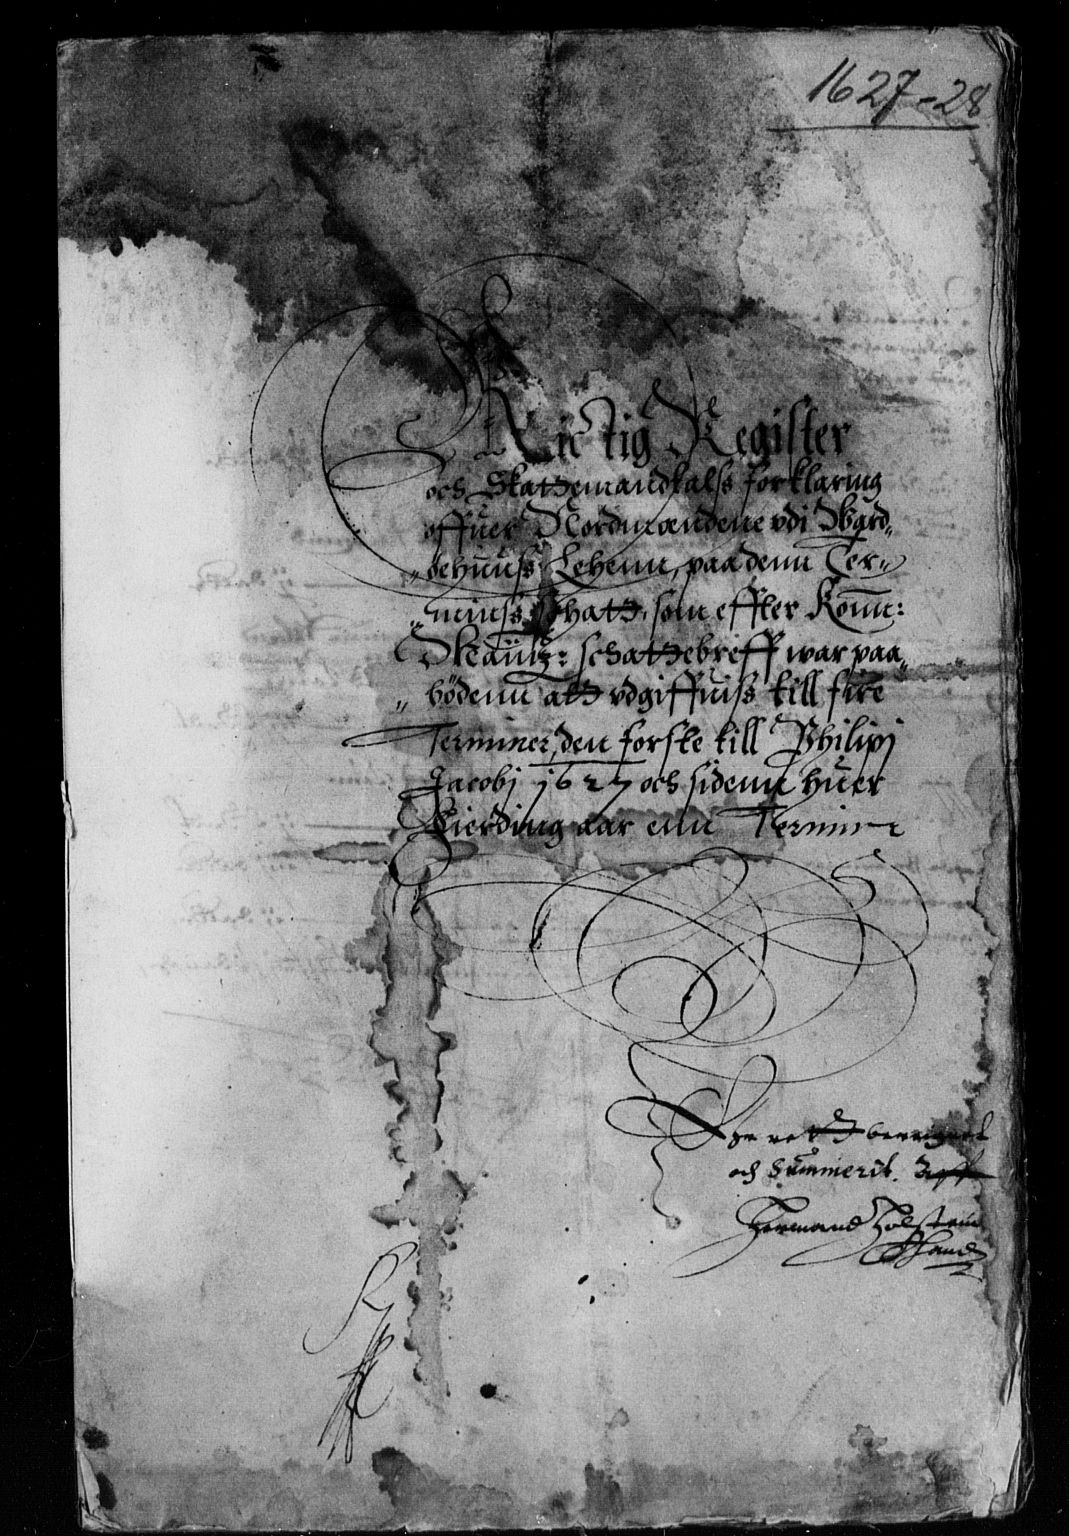 1627-28
Rictig Register
och Skattemandtalss forklaring
offuer Nordmændene vdi Ward„
„øehuuss Lehenn, paa denn Ter„
„minss schatt, som effter Konn:
Maÿtz: schattebreff war paa„
„bödenn att vdgiffuiss till fire
Terminer, den forste till Philipj
Jacobj 1627 och sidenn huer
Fierding aar enn Terminr
Er rett beregnet
och Summerit. Aff
Hermand Holstein
Hand